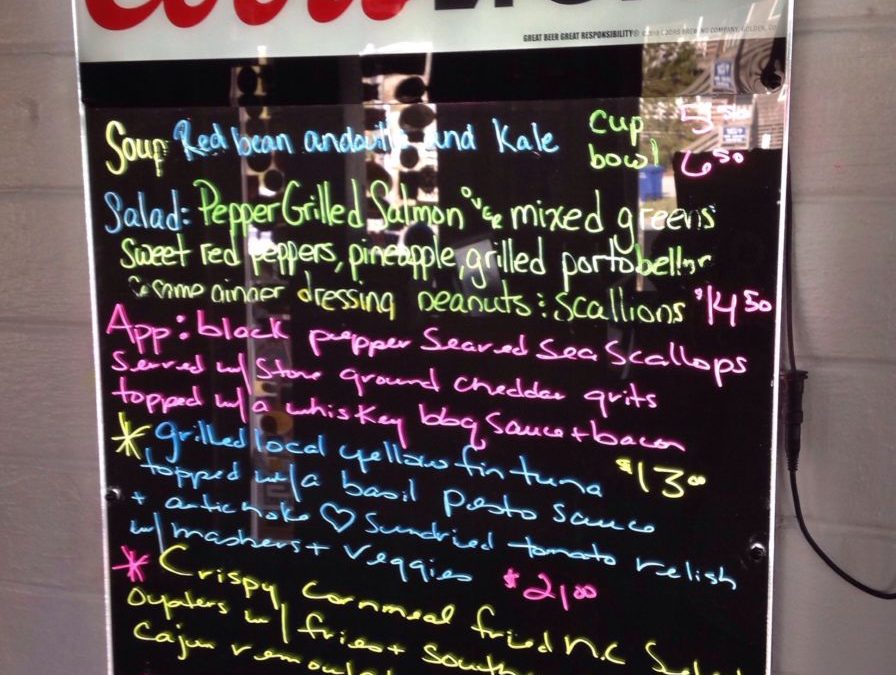 Coors
GREAT BEER GREAT RESPONSIBILITY®
Soup Red bean andouille and Kale
cup 5
bowl 6 50
Salad: Pepper Grilled Salmon over mixed greens
Sweet red peppers, pineapple, grilled portobello
Sesame ginger dressing peanuts : scallions $14 50
App: black pepper Seared Sea Scallops
Served w/ Stone ground cheddar grits
topped w/a whiskey bbq sauce + bacon
$13 00
* grilled local yellowfin tuna
topped w/a basil pesto sauce
+ artichoke ♡ Sundried tomato relish
w/ mashers + veggies $21.00
* Crispy Cornmeal fried N.C
Oysters w/ fries +
Cajun